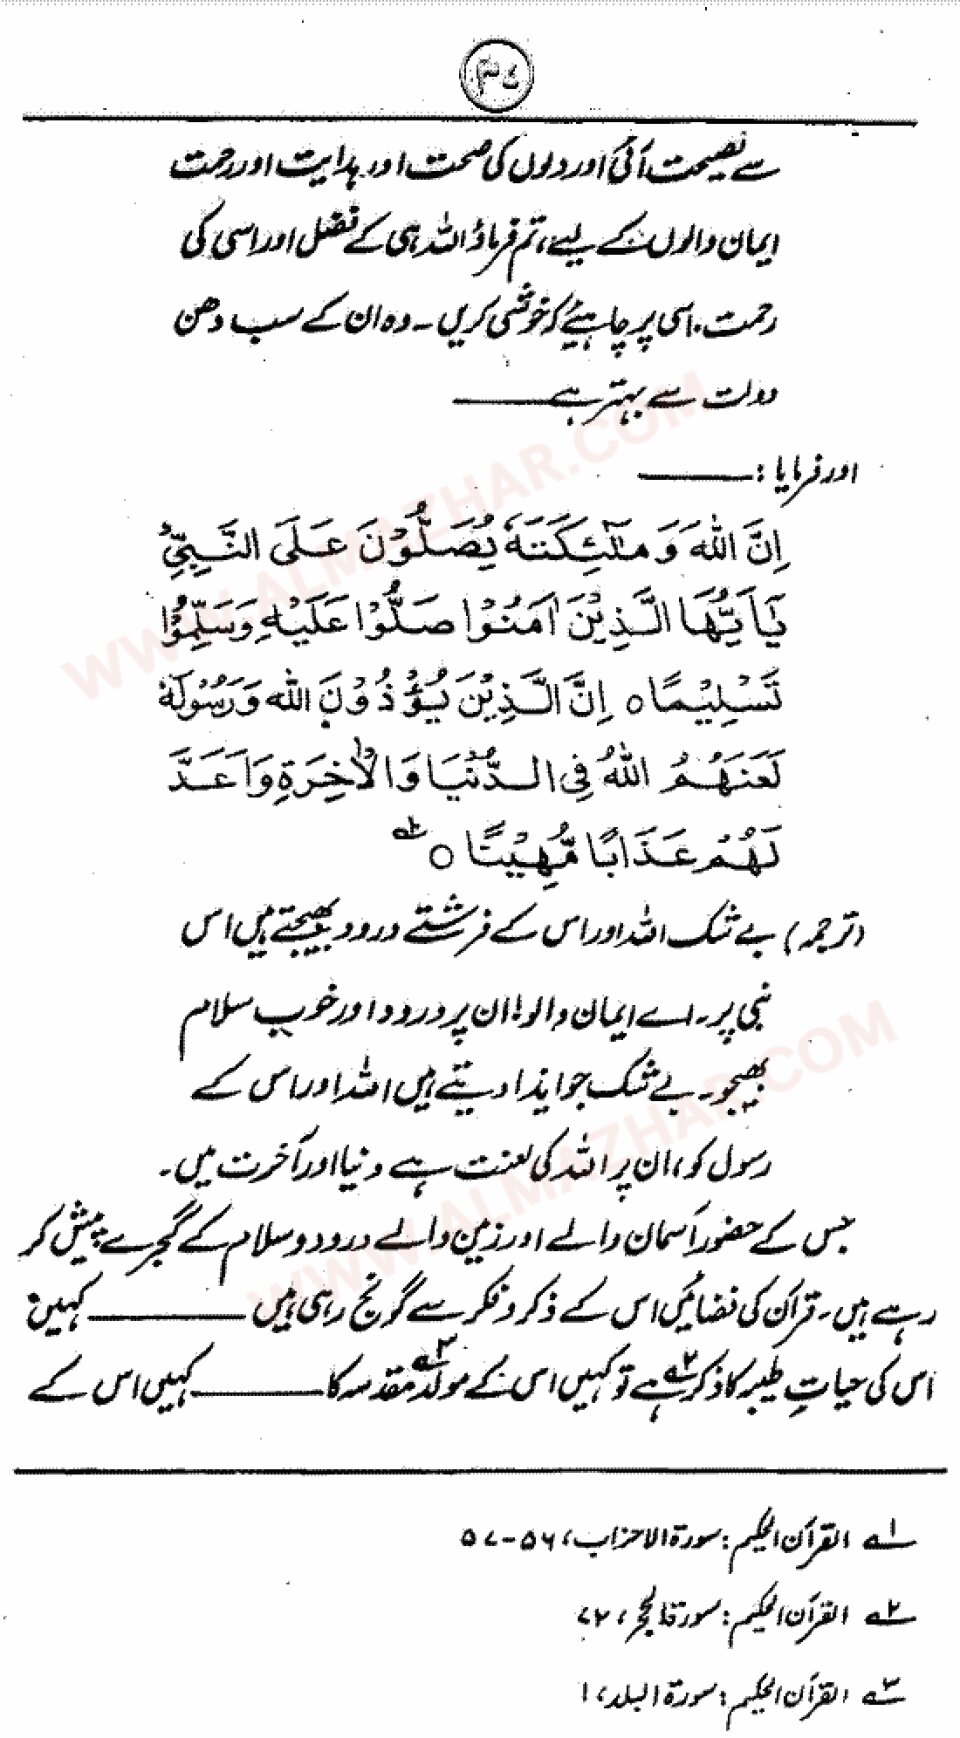 ۳۷
سے نصیحت آئی اور دلوں کی صحت اور ہدایت اور رحمت
ایمان والوں کے لیے، تم فرماؤ اللہ ہی کے فضل اور اسی کی
رحمت، اسی پر چاہیئے کہ خوشی کریں۔ وہ ان کے سب دھن
دولت سے بہتر ہے ———
اور فرمایا : ———
اِنَّ اللّٰهَ وَ مَلٰٓئِكَتَهٗ يُصَلُّوْنَ عَلَى النَّبِيِّ ؕ
يٰٓاَيُّهَا الَّذِيْنَ اٰمَنُوْا صَلُّوْا عَلَيْهِ وَسَلِّمُوْا
تَسْلِيْمًا ○ اِنَّ الَّذِيْنَ يُؤْذُوْنَ اللّٰهَ وَرَسُوْلَهٗ
لَعَنَهُمُ اللّٰهُ فِي الدُّنْيَا وَالْاٰخِرَةِ وَاَعَدَّ
لَهُمْ عَذَابًا مُّهِيْنًا ○ ؂۱
(ترجمہ) بے شک اللہ اور اس کے فرشتے درود بھیجتے ہیں اس
نبی پر۔ اے ایمان والو! ان پر درود اور خوب سلام
بھیجو۔ بے شک جو ایذا دیتے ہیں اللہ اور اس کے
رسول کو، ان پر اللہ کی لعنت ہے دنیا اور آخرت میں۔
جس کے حضور آسمان والے اور زمین والے درود و سلام کے گجرے پیش کر
رہے ہیں۔ قرآن کی فضائیں اس کے ذکر و فکر سے گونج رہی ہیں ——— کہیں
اس کی حیاتِ طیبہ کا ذکر ؂۲ ہے تو کہیں اس کے مولد مقدسہ ؂۳ کا ——— کہیں اس کے
؂۱ القرآن الحکیم : سورة الاحزاب، ۵۶-۵۷
؂۲ القرآن الحکیم : سورة الحجر، ۷۲
؂۳ القرآن الحکیم : سورة البلد، ۱
WWW.ALMAZHAR.COM
WWW.ALMAZHAR.COM